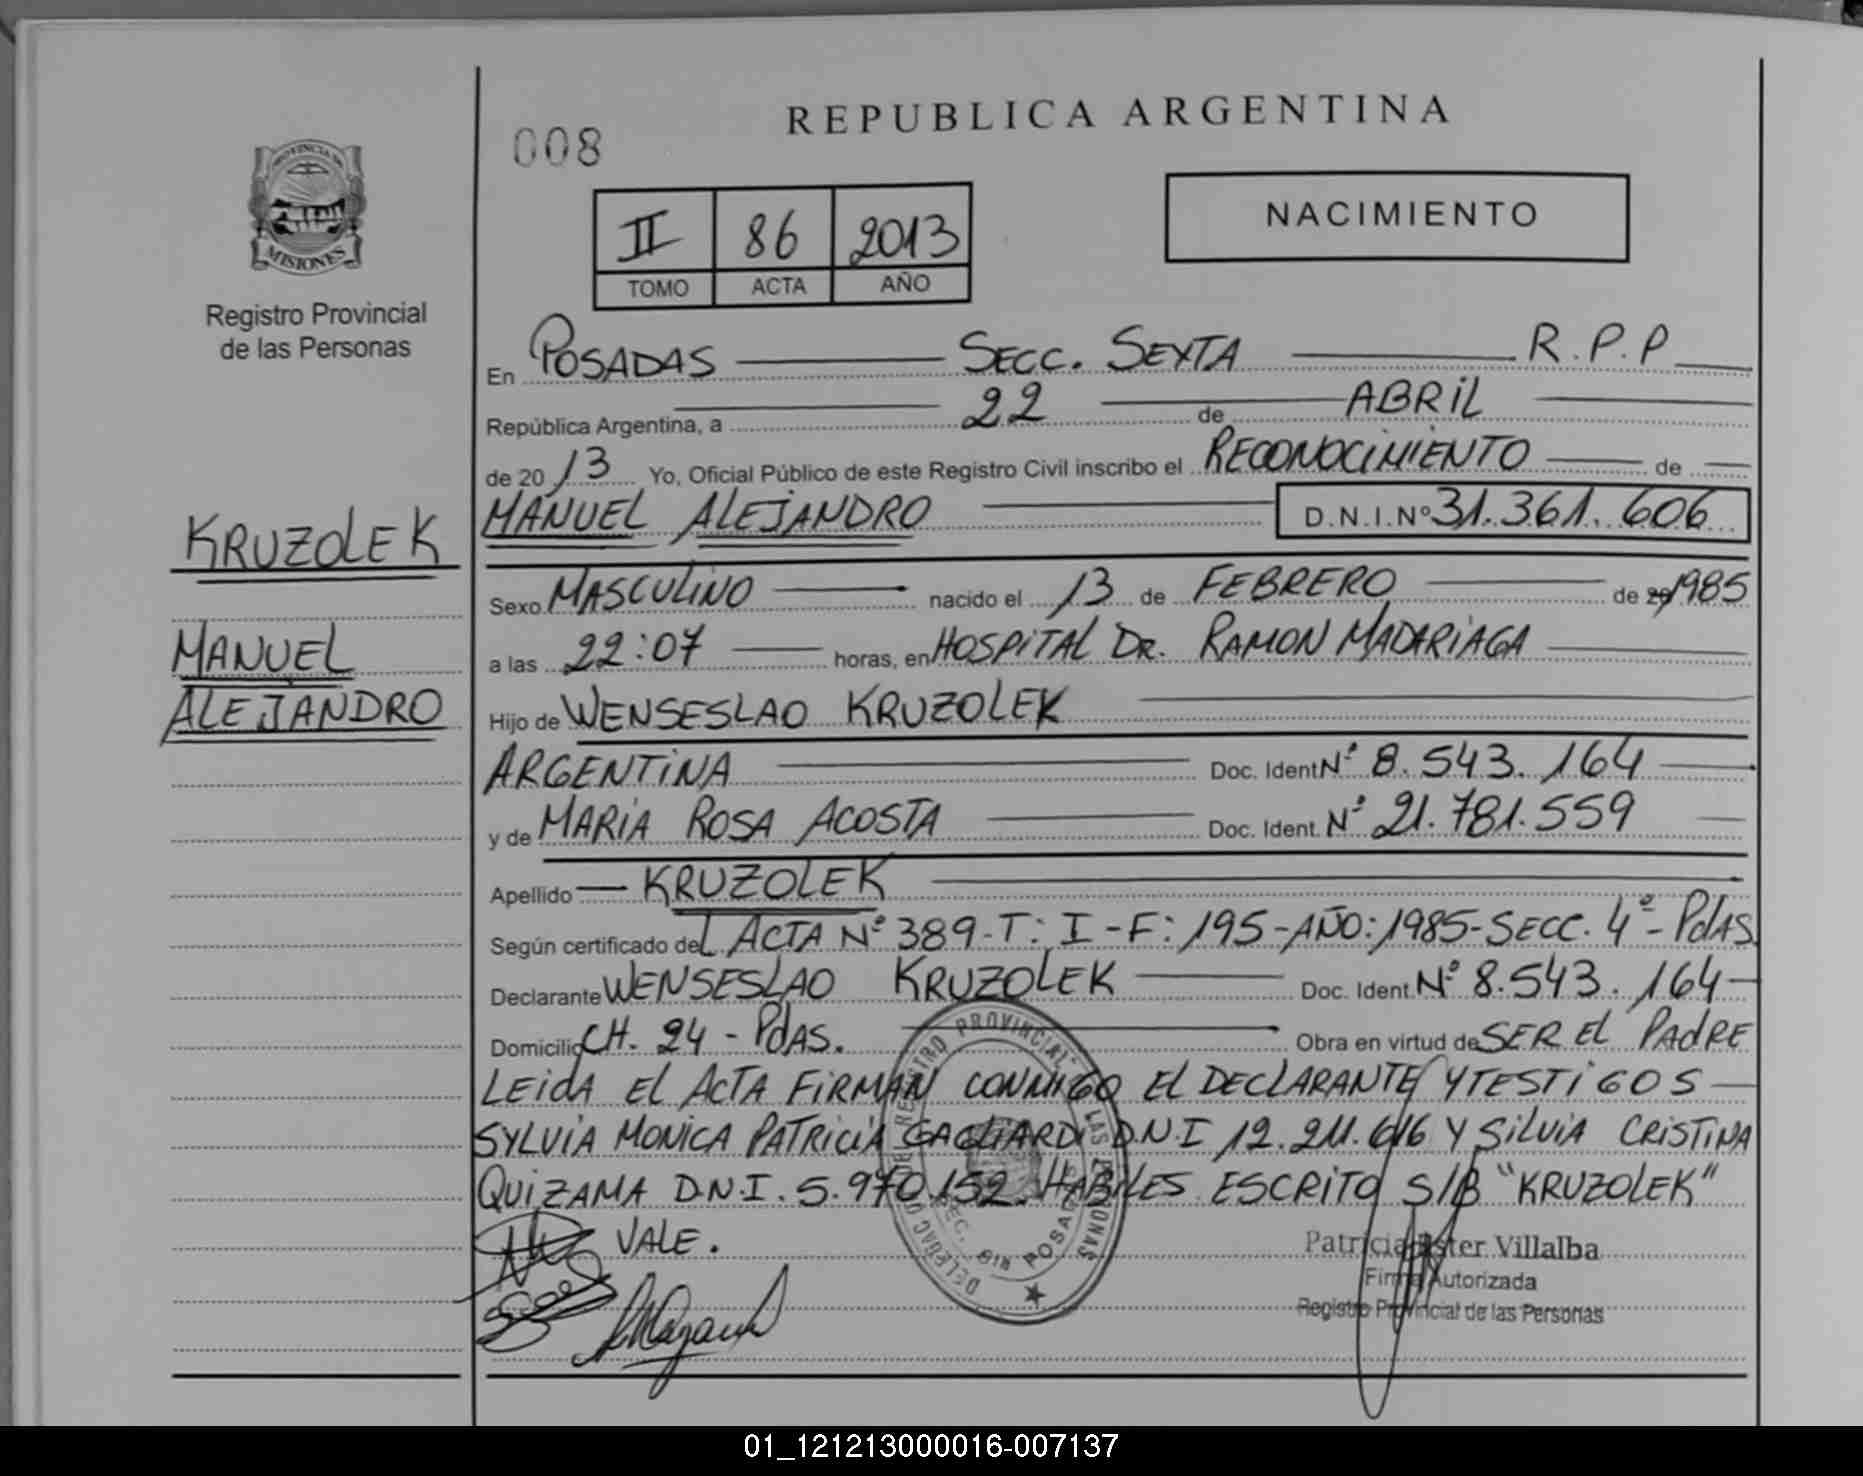 REPUBLICA ARGENTINA
008
PROVINCIA DE
MISIONES
Registro Provincial
de las Personas
II 86 2013
TOMO ACTA AÑO
NACIMIENTO
En POSADAS SECC. SEXTA R.P.P
República Argentina, a 22 de ABRIL
de 2013 Yo, Oficial Público de este Registro Civil inscribo el RECONOCIMIENTO de
MANUEL ALEJANDRO D.N.I.Nº 31.361.606
KRUZOLEK
MANUEL
ALEJANDRO
Sexo MASCULINO nacido el 13 de FEBRERO de 1985
a las 22:07 horas, en HOSPITAL DR. RAMON MADARIAGA
Hijo de WENSESLAO KRUZOLEK
ARGENTINA Doc. Ident Nº 8.543.164
y de MARIA ROSA ACOSTA Doc. Ident. Nº 21.781.559
Apellido KRUZOLEK
Según certificado del ACTA Nº 389-T: I-F: 195-AÑO: 1985-SECC. 4º-PdAS.
Declarante WENSESLAO KRUZOLEK Doc. Ident. Nº 8.543.164
Domicilio CH. 24 - PdAS. Obra en virtud de SER EL PADRE
LEIDA EL ACTA FIRMAN CONMIGO EL DECLARANTE Y TESTIGOS
SYLVIA MONICA PATRICIA GAGLIARDI D.N.I 12.211.616 Y SILVIA CRISTINA
QUIZAMA D.N.I. 5.970.152. HABILES ESCRITO S/B "KRUZOLEK"
VALE.
REGISTRO PROVINCIAL LAS PERSONAS
POSADAS
Patricia Villalba
Firma Autorizada
Registro Provincial de las Personas
01_121213000016-007137